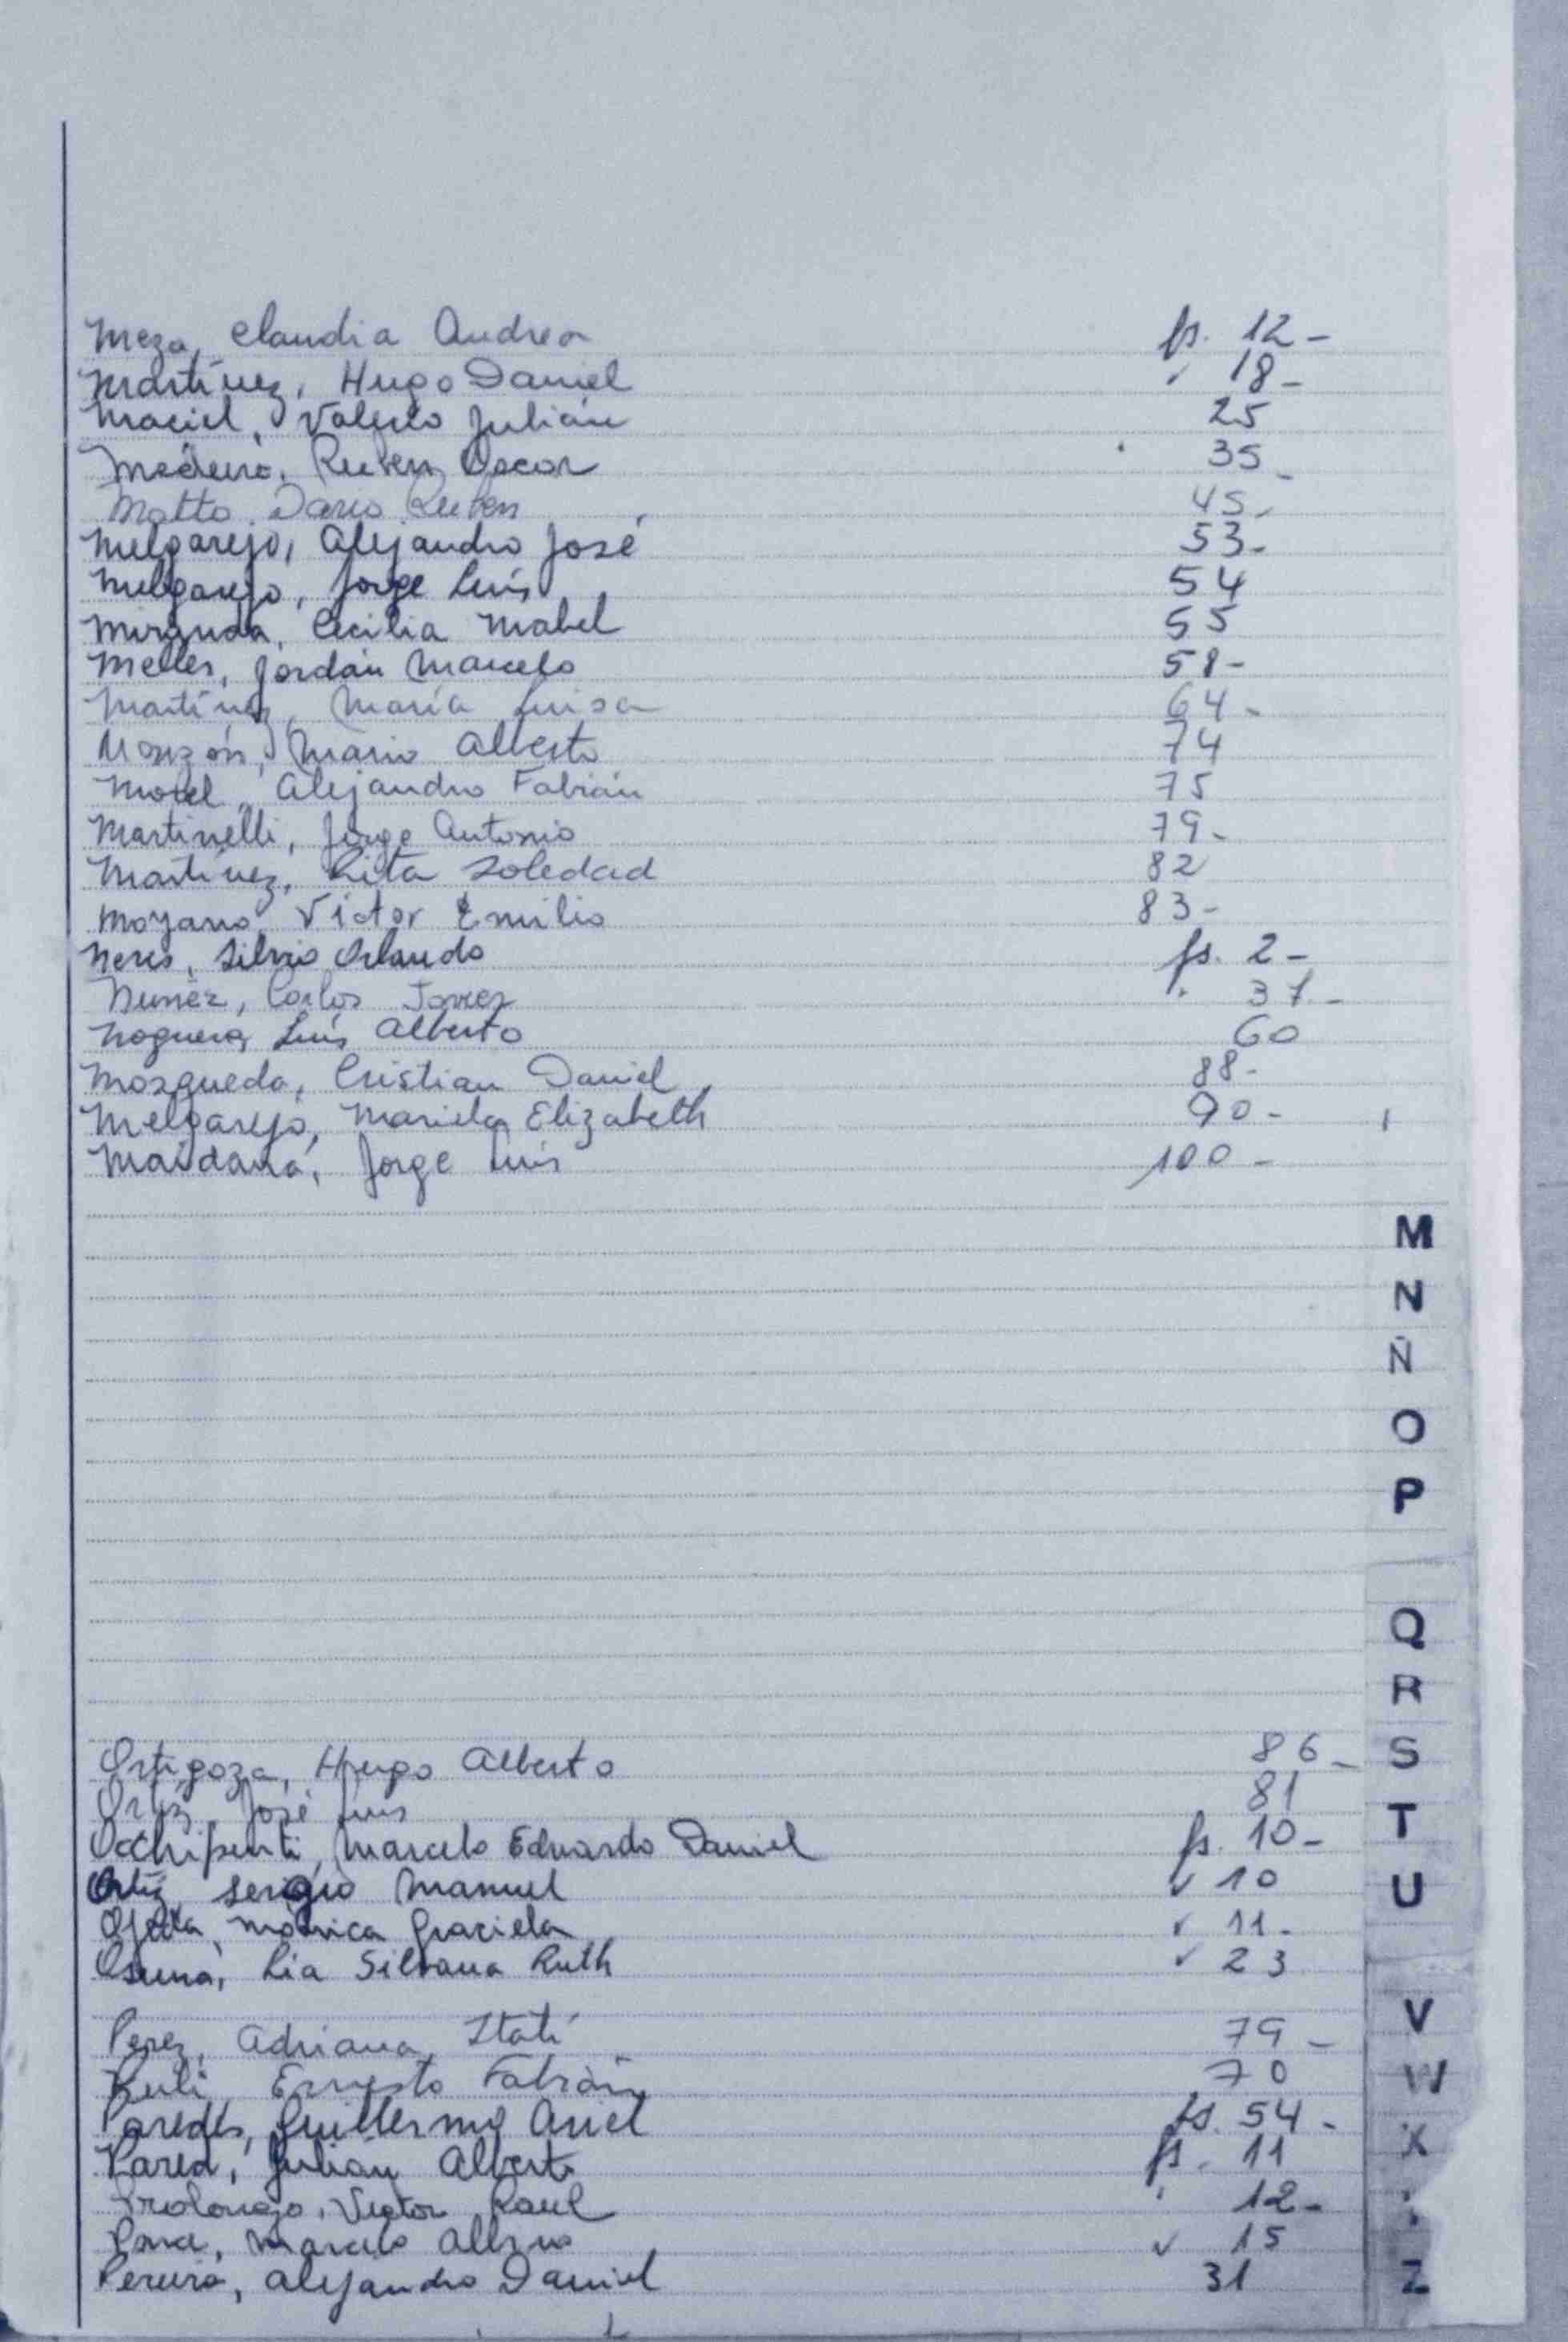 Meza, Claudia Andrea fs. 12-
Martínez, Hugo Daniel ✓ 18-
Maciel, Valerio Julián 25
Rubén Oscar 35
Motto, Dario Ruben 45-
Melgarejo, Alejandro José 53-
Melgarejo, Jorge Luis 54
Miranda, Cecilia Mabel 55
Melles, Jordán Marcelo 58-
Martínez, María Luisa 64-
Monzón, Mario Alberto 74
Morel, Alejandro Fabián 75
Martinelli, Jorge Antonio 79-
Martínez, Rita Soledad 82
Moyano, Víctor Emilio 83-
Neres, Silvio Orlando fs. 2-
Nuñez, Carlos 37-
Noguera, Luís Alberto 60
Mosqueda, Cristian Daniel 88-
Melgarejo, Mariela Elizabeth 90-
Maidana, Jorge Luis 100-
M
N
Ñ
O
P
Q
R
S
T
U
V
W
X
Z
Ortigoza, Hugo Alberto 86-
Ortiz, José Luis 81
Occhipinti, Marcelo Eduardo Daniel fs. 10-
Ortiz, Sergio Manuel ✓ 10
Ojeda, Mónica Graciela ✓ 11-
Osuna, Lia Silvana Ruth ✓ 23
Perez, Adriana Itatí 79-
Ernesto Fabián 70
Paredes, Guillermo Ariel fs. 54-
Julián Alberto fs. 11
Victor Raul 12-
Marcelo ✓ 15
Pereira, Alejandro Daniel 31